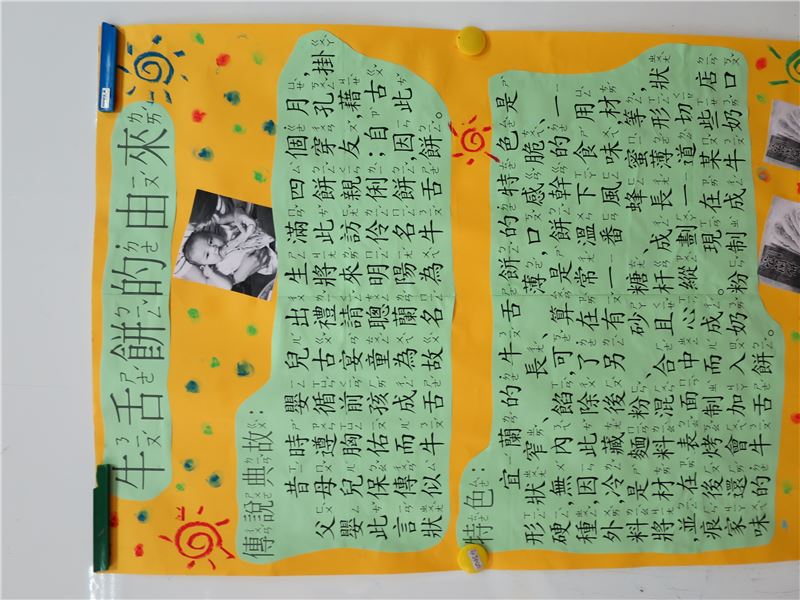 牛舌餅的由來
傳說典故：
昔時嬰兒出生滿四個月,
父母遵循古禮將此餅穿孔,掛
嬰兒胸前宴請來訪親友,藉
此保佑孩童聰明伶俐;自古
言傳而成為蘭陽名餅,因此
狀似牛舌故名為牛舌餅。
特色：
宜蘭的牛舌餅的特色是
形狀窄、長、薄,口感脆、
硬,無內餡,可算是餅幹的一
種,因此除了在常溫下食用
外,冷藏後另有一番風味材
料是麵粉、砂糖、蜂蜜等,
將材料混合且杆成長薄形狀
,並在表面中心縱劃一道切
痕後烤制而成。現在某些店
家還會加入奶粉制成牛奶口
味的牛舌餅。